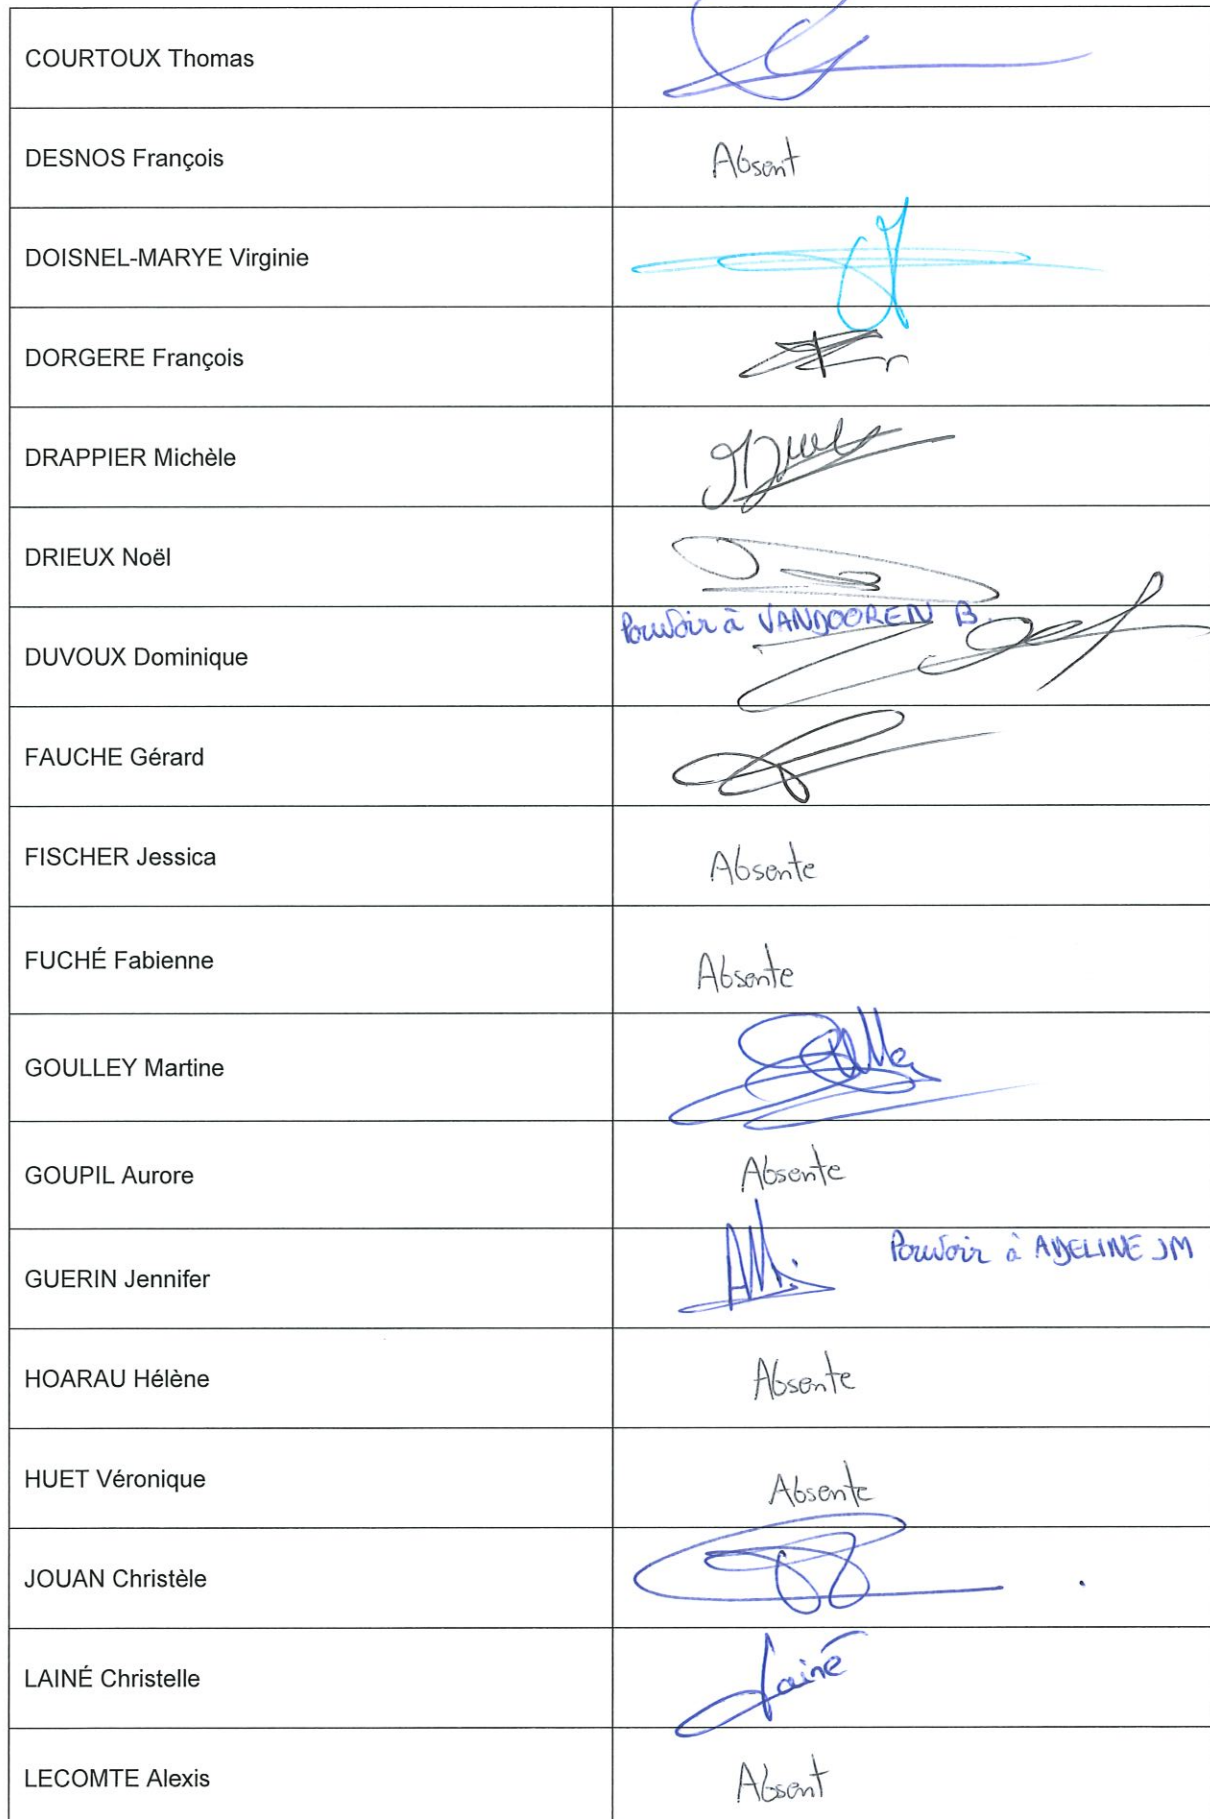 COURTOUX Thomas
DESNOS François Absent
DOISNEL-MARYE Virginie
DORGERE François
DRAPPIER Michèle
DRIEUX Noël
Pouvoir à VANDOOREN B.
DUVOUX Dominique
FAUCHE Gérard
FISCHER Jessica Absente
FUCHÉ Fabienne Absente
GOULLEY Martine
GOUPIL Aurore Absente
GUERIN Jennifer Pouvoir à ADELINE JM
HOARAU Hélène Absente
HUET Véronique Absente
JOUAN Christèle
LAINÉ Christelle Lainé
LECOMTE Alexis Absent